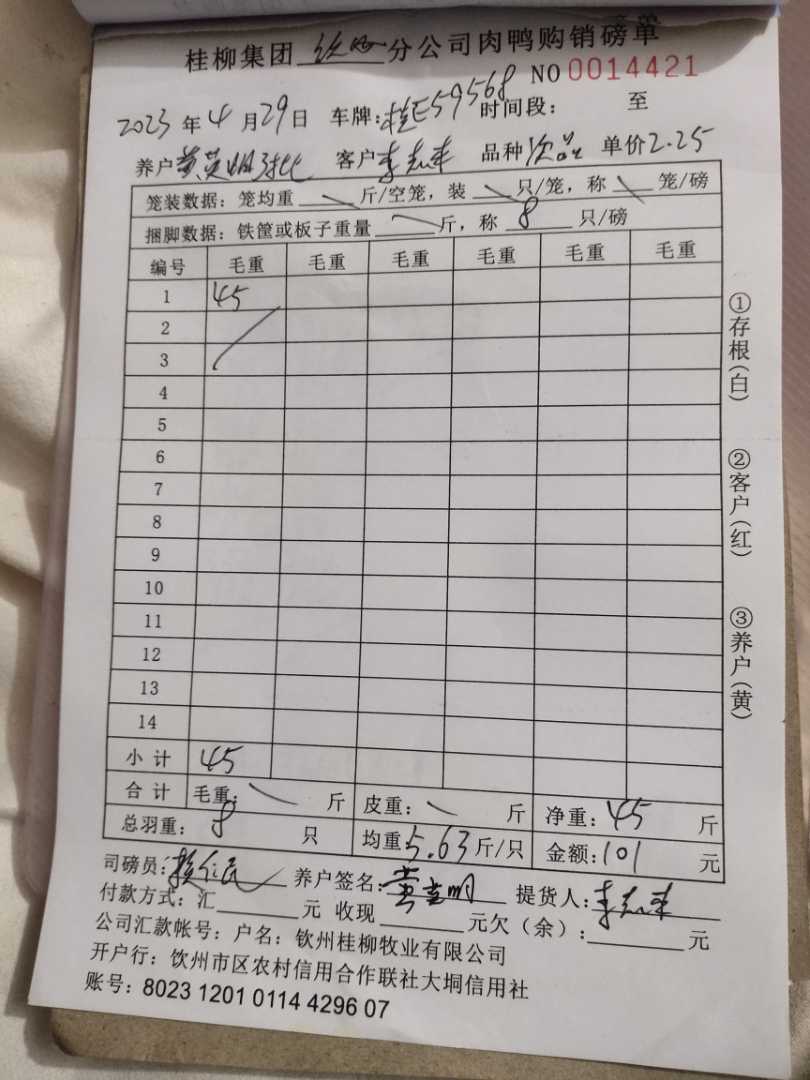 桂柳集团 分公司肉鸭购销磅单
NO 0014421
2023 年 4 月 29 日 车牌: 桂E59568 时间段: 至
养户 客户 品种 次品 单价 2.25
笼装数据: 笼均重 斤/空笼, 装 只/笼, 称 笼/磅
捆脚数据: 铁筐或板子重量 斤, 称 8 只/磅
编号 毛重 毛重 毛重 毛重 毛重 毛重
1 45
2
3
4
5
6
7
8
9
10
11
12
13
14
小计 45
合计 毛重: 斤 皮重: 斤 净重: 45 斤
总羽重: 8 只 均重 5.63 斤/只 金额: 101 元
司磅员: 养户签名: 提货人:
付款方式: 汇 元 收现 元欠(余): 元
公司汇款帐号: 户名: 钦州桂柳牧业有限公司
开户行: 钦州市区农村信用合作联社大垌信用社
账号: 8023 1201 0114 4296 07
①存根(白)
②客户(红)
③养户(黄)